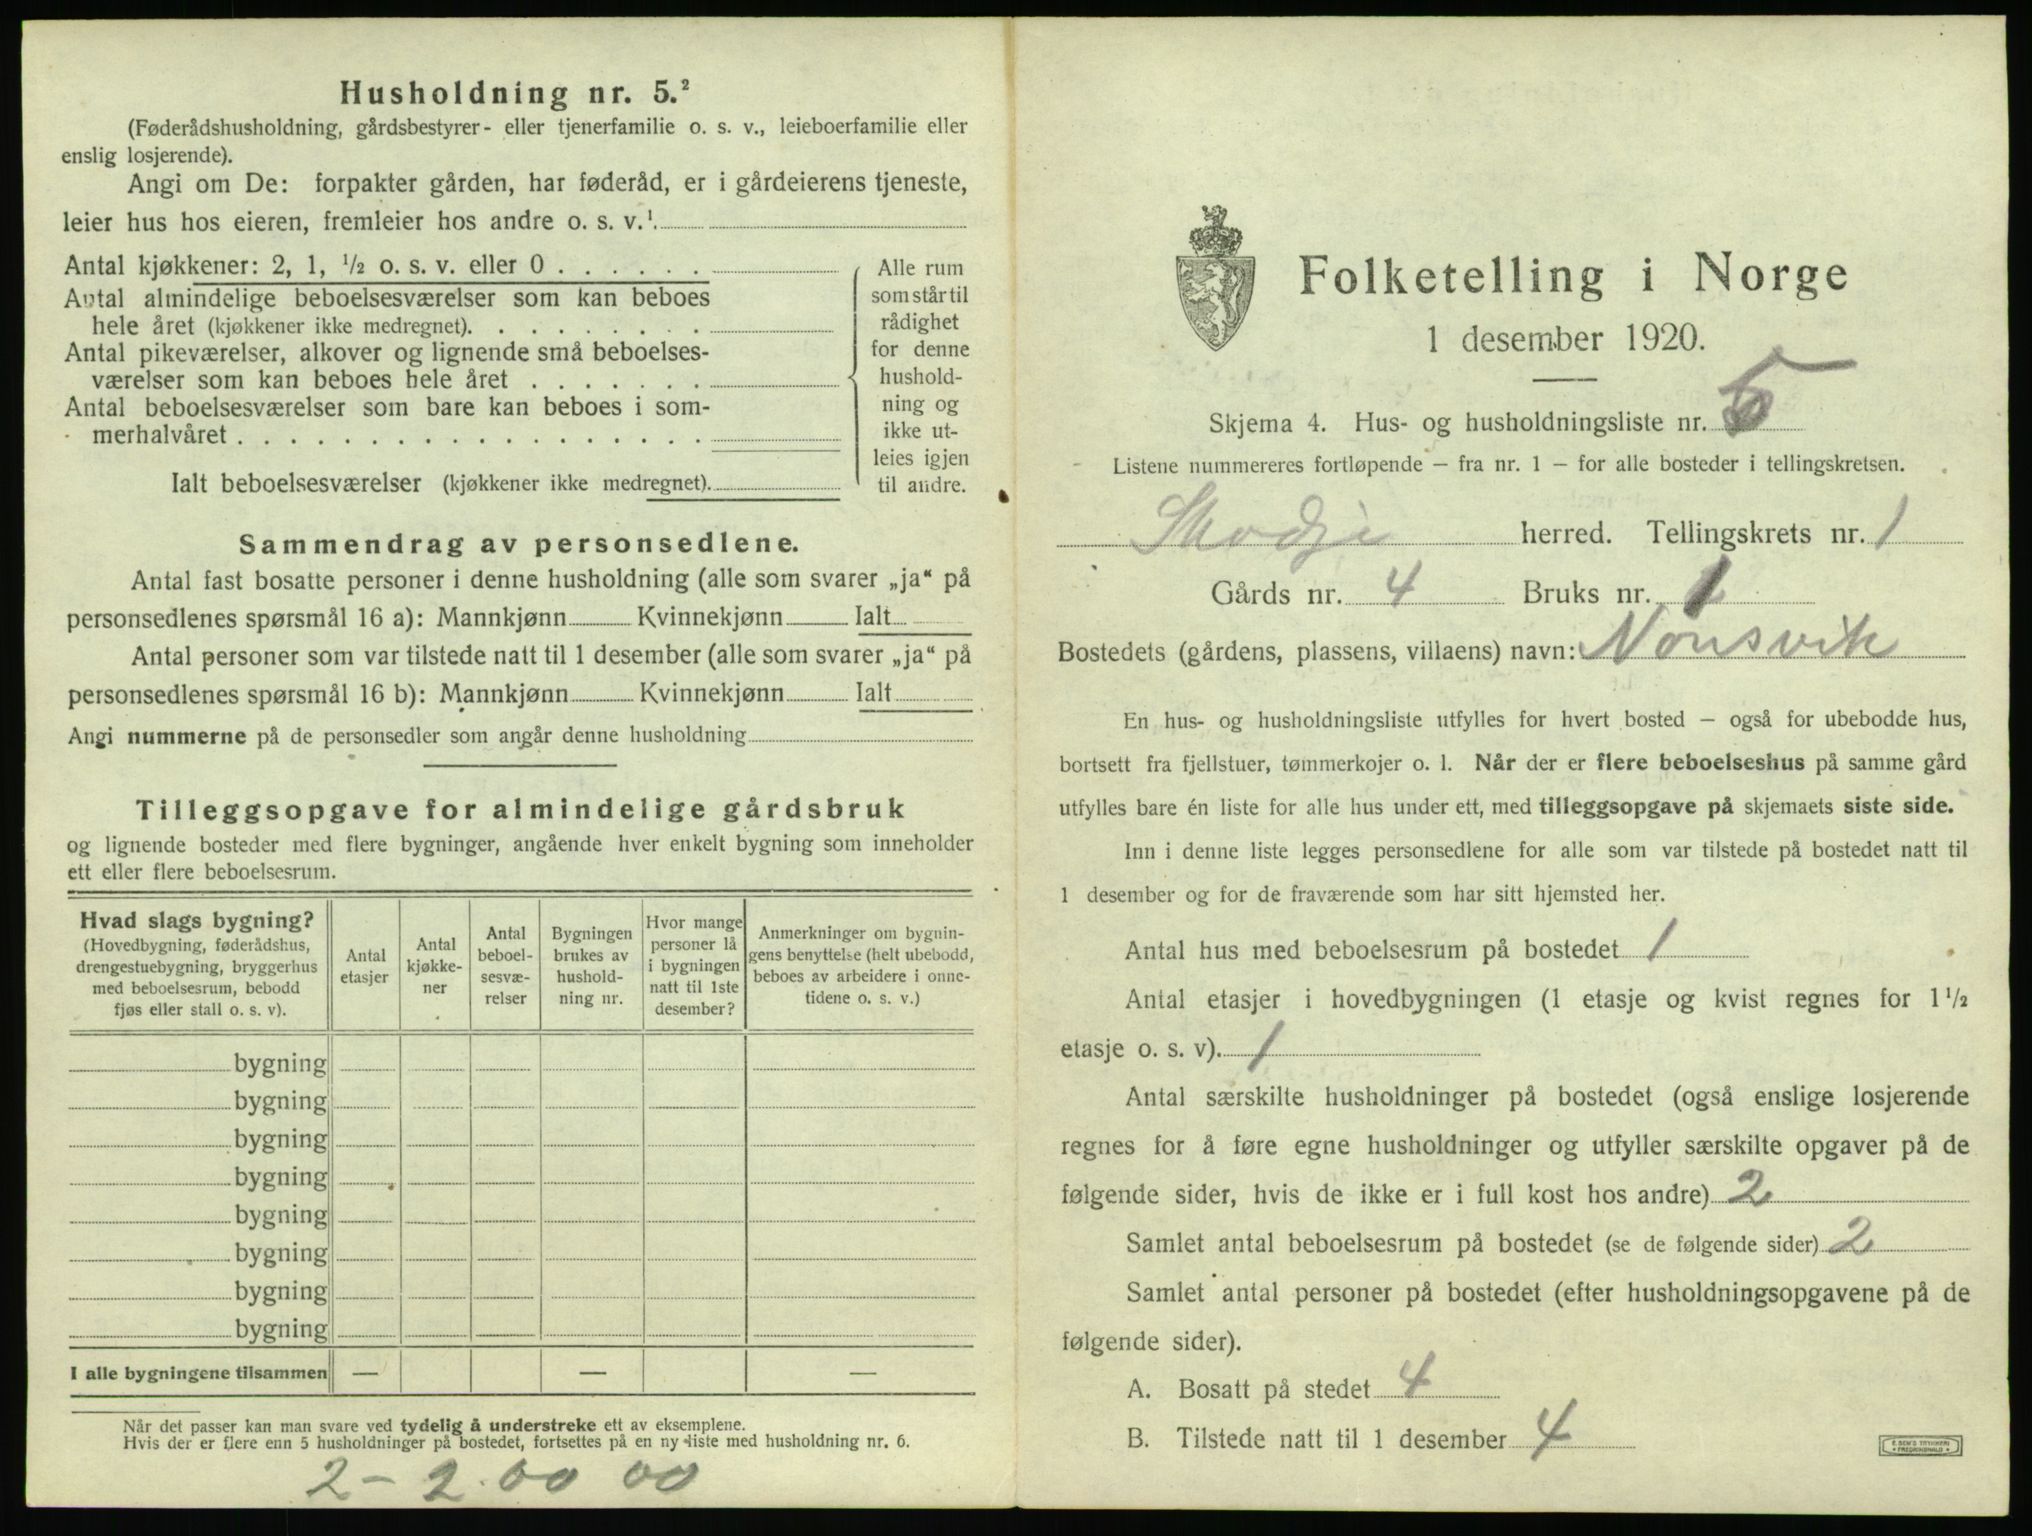 Husholdning nr. 5.²
(Føderådshusholdning, gårdsbestyrer- eller tjenerfamilie o. s. v., leieboerfamilie eller
enslig losjerende).
Angi om De: forpakter gården, har føderåd, er i gårdeierens tjeneste,
leier hus hos eieren, fremleier hos andre o. s. v.¹
Antal kjøkkener: 2, 1, ½ o. s. v. eller 0 . . . . . .
Antal almindelige beboelsesværelser som kan beboes
hele året (kjøkkener ikke medregnet). . . . . . . . .
Antal pikeværelser, alkover og lignende små beboelses-
værelser som kan beboes hele året . . . . . . .
Antal beboelsesværelser som bare kan beboes i som-
merhalvåret . . . . . . . . . . . . . . . . . .
Ialt beboelsesværelser (kjøkkener ikke medregnet).
Alle rum
som står til
rådighet
for denne
hushold-
ning og
ikke ut-
leies igjen
til andre.
Sammendrag av personsedlene.
Antal fast bosatte personer i denne husholdning (alle som svarer „ja“ på
personsedlenes spørsmål 16 a): Mannkjønn Kvinnekjønn Ialt
Antal personer som var tilstede natt til 1 desember (alle som svarer „ja“ på
personsedlenes spørsmål 16 b): Mannkjønn Kvinnekjønn Ialt
Angi nummerne på de personsedler som angår denne husholdning
Tilleggsopgave for almindelige gårdsbruk
og lignende bosteder med flere bygninger, angående hver enkelt bygning som inneholder
ett eller flere beboelsesrum.
Hvad slags bygning?
(Hovedbygning, føderådshus,
drengestuebygning, bryggerhus
med beboelsesrum, bebodd
fjøs eller stall o. s. v).
Antal
etasjer
Antal
kjøkke-
ner
Antal
beboel-
sesvæ-
relser
Bygningen
brukes av
hushold-
ning nr.
Hvor mange
personer lå
i bygningen
natt til 1ste
desember?
Anmerkninger om bygnin-
gens benyttelse (helt ubebodd,
beboes av arbeidere i onne-
tidene o. s. v.)
bygning
bygning
bygning
bygning
bygning
bygning
bygning
bygning
I alle bygningene tilsammen — — —
Når det passer kan man svare ved tydelig å understreke ett av eksemplene.
Hvis der er flere enn 5 husholdninger på bostedet, fortsettes på en ny liste med husholdning nr. 6.
2 - 2 00 00
Folketelling i Norge
1 desember 1920.
Skjema 4. Hus- og husholdningsliste nr. 5
Listene nummereres fortløpende — fra nr. 1 — for alle bosteder i tellingskretsen.
Skodje herred. Tellingskrets nr. 1
Gårds nr. 4 Bruks nr. 1
Bostedets (gårdens, plassens, villaens) navn: Nonsvik
En hus- og husholdningsliste utfylles for hvert bosted — også for ubebodde hus,
bortsett fra fjellstuer, tømmerkojer o. l. Når der er flere beboelseshus på samme gård
utfylles bare én liste for alle hus under ett, med tilleggsopgave på skjemaets siste side.
Inn i denne liste legges personsedlene for alle som var tilstede på bostedet natt til
1 desember og for de fraværende som har sitt hjemsted her.
Antal hus med beboelsesrum på bostedet 1
Antal etasjer i hovedbygningen (1 etasje og kvist regnes for 1½
etasje o. s. v). 1
Antal særskilte husholdninger på bostedet (også enslige losjerende
regnes for å føre egne husholdninger og utfyller særskilte opgaver på de
følgende sider, hvis de ikke er i full kost hos andre) 2
Samlet antal beboelsesrum på bostedet (se de følgende sider) 2
Samlet antal personer på bostedet (efter husholdningsopgavene på de
følgende sider).
A. Bosatt på stedet 4
B. Tilstede natt til 1 desember 4